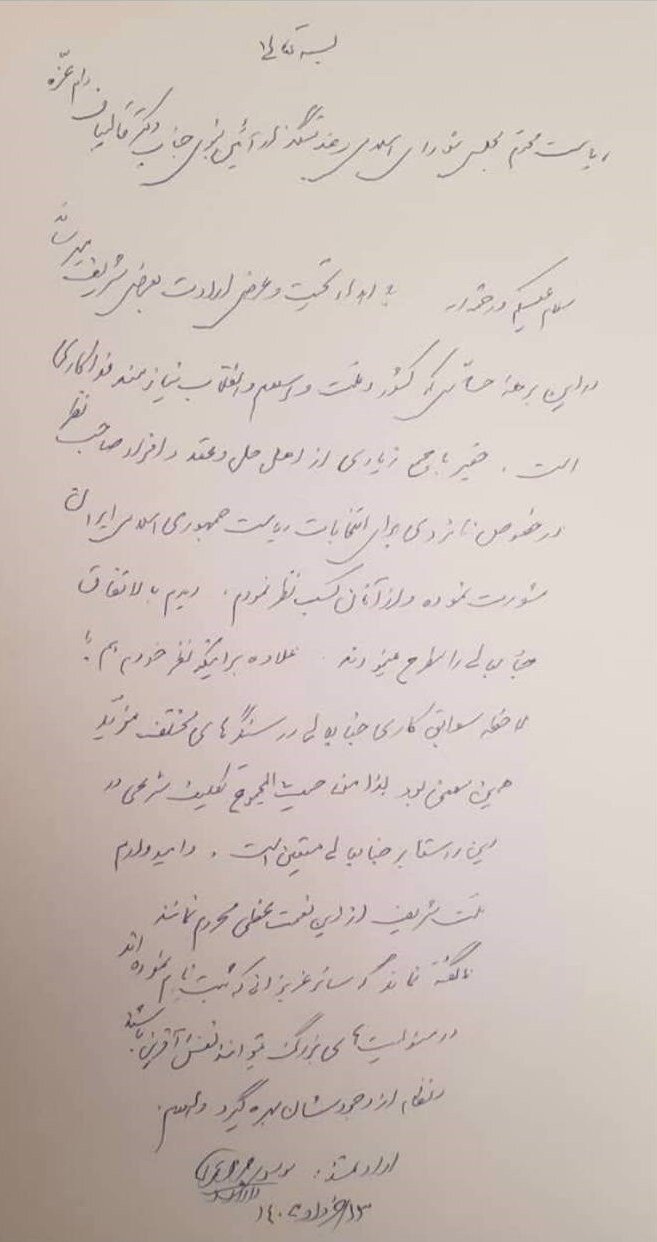 بسمه تعالی
ریاست محترم مجلس شورای اسلامی خدمتگزار آئین نبوی جناب دکتر قالیباف دام عزّه
سلام علیکم با اهداء تحیّت و عرض ارادت بعرض شریف میرساند
در این برهه حسّاس که کشور و ملت و اسلام و انقلاب نیازمند فداکاری
است . حقیر با جمع زیادی از اهل حل و عقد و افراد صاحب نظر
در خصوص نامزدی برای انتخابات ریاست جمهوری اسلامی ایران
مشورت نموده و از آنان کسب نظر نمودم . دیدم بالاتفاق
جنابعالی را مطرح مینمودند . علاوه بر اینکه نظر خودم هم با
ملاحظه سوابق کاری جنابعالی در سنگرهای مختلف مؤیّد
همین معنی بود لذا من حیث المجموع تکلیف شرعی در
این راستا بر جنابعالی متعین است . و امیدوارم
ملّت شریف از این نعمت عظمی محروم نمانند
ناگفته نماند که سائر عزیزانی که ثبت نام نموده‌اند
در مسئولیت‌های بزرگ میتوانند نقش آفرین باشند
و نظام از وجودشان بهره گیرد والسلام .
ارادتمند :
۱۳/خرداد/۱۴۰۳